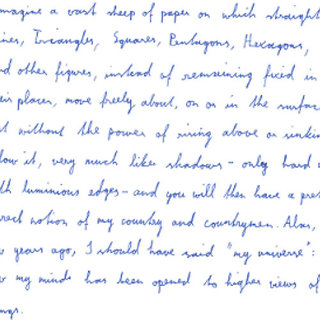 magine a vast sheep of paper on which straight
ines, Triangles, Squares, Pentagons, Hexagons,
nd other figures, instead of remaining fixed in
eir places, move freely about, on or in the surfac
t without the power of rising above or sinkin
low it, very much like shadows - only hard a
th luminious edges - and you will then have a pret
rrect notion of my country and countrymen. Alas,
w years ago, I should have said "my universe":
w my minds has been opened to higher views of
ings.